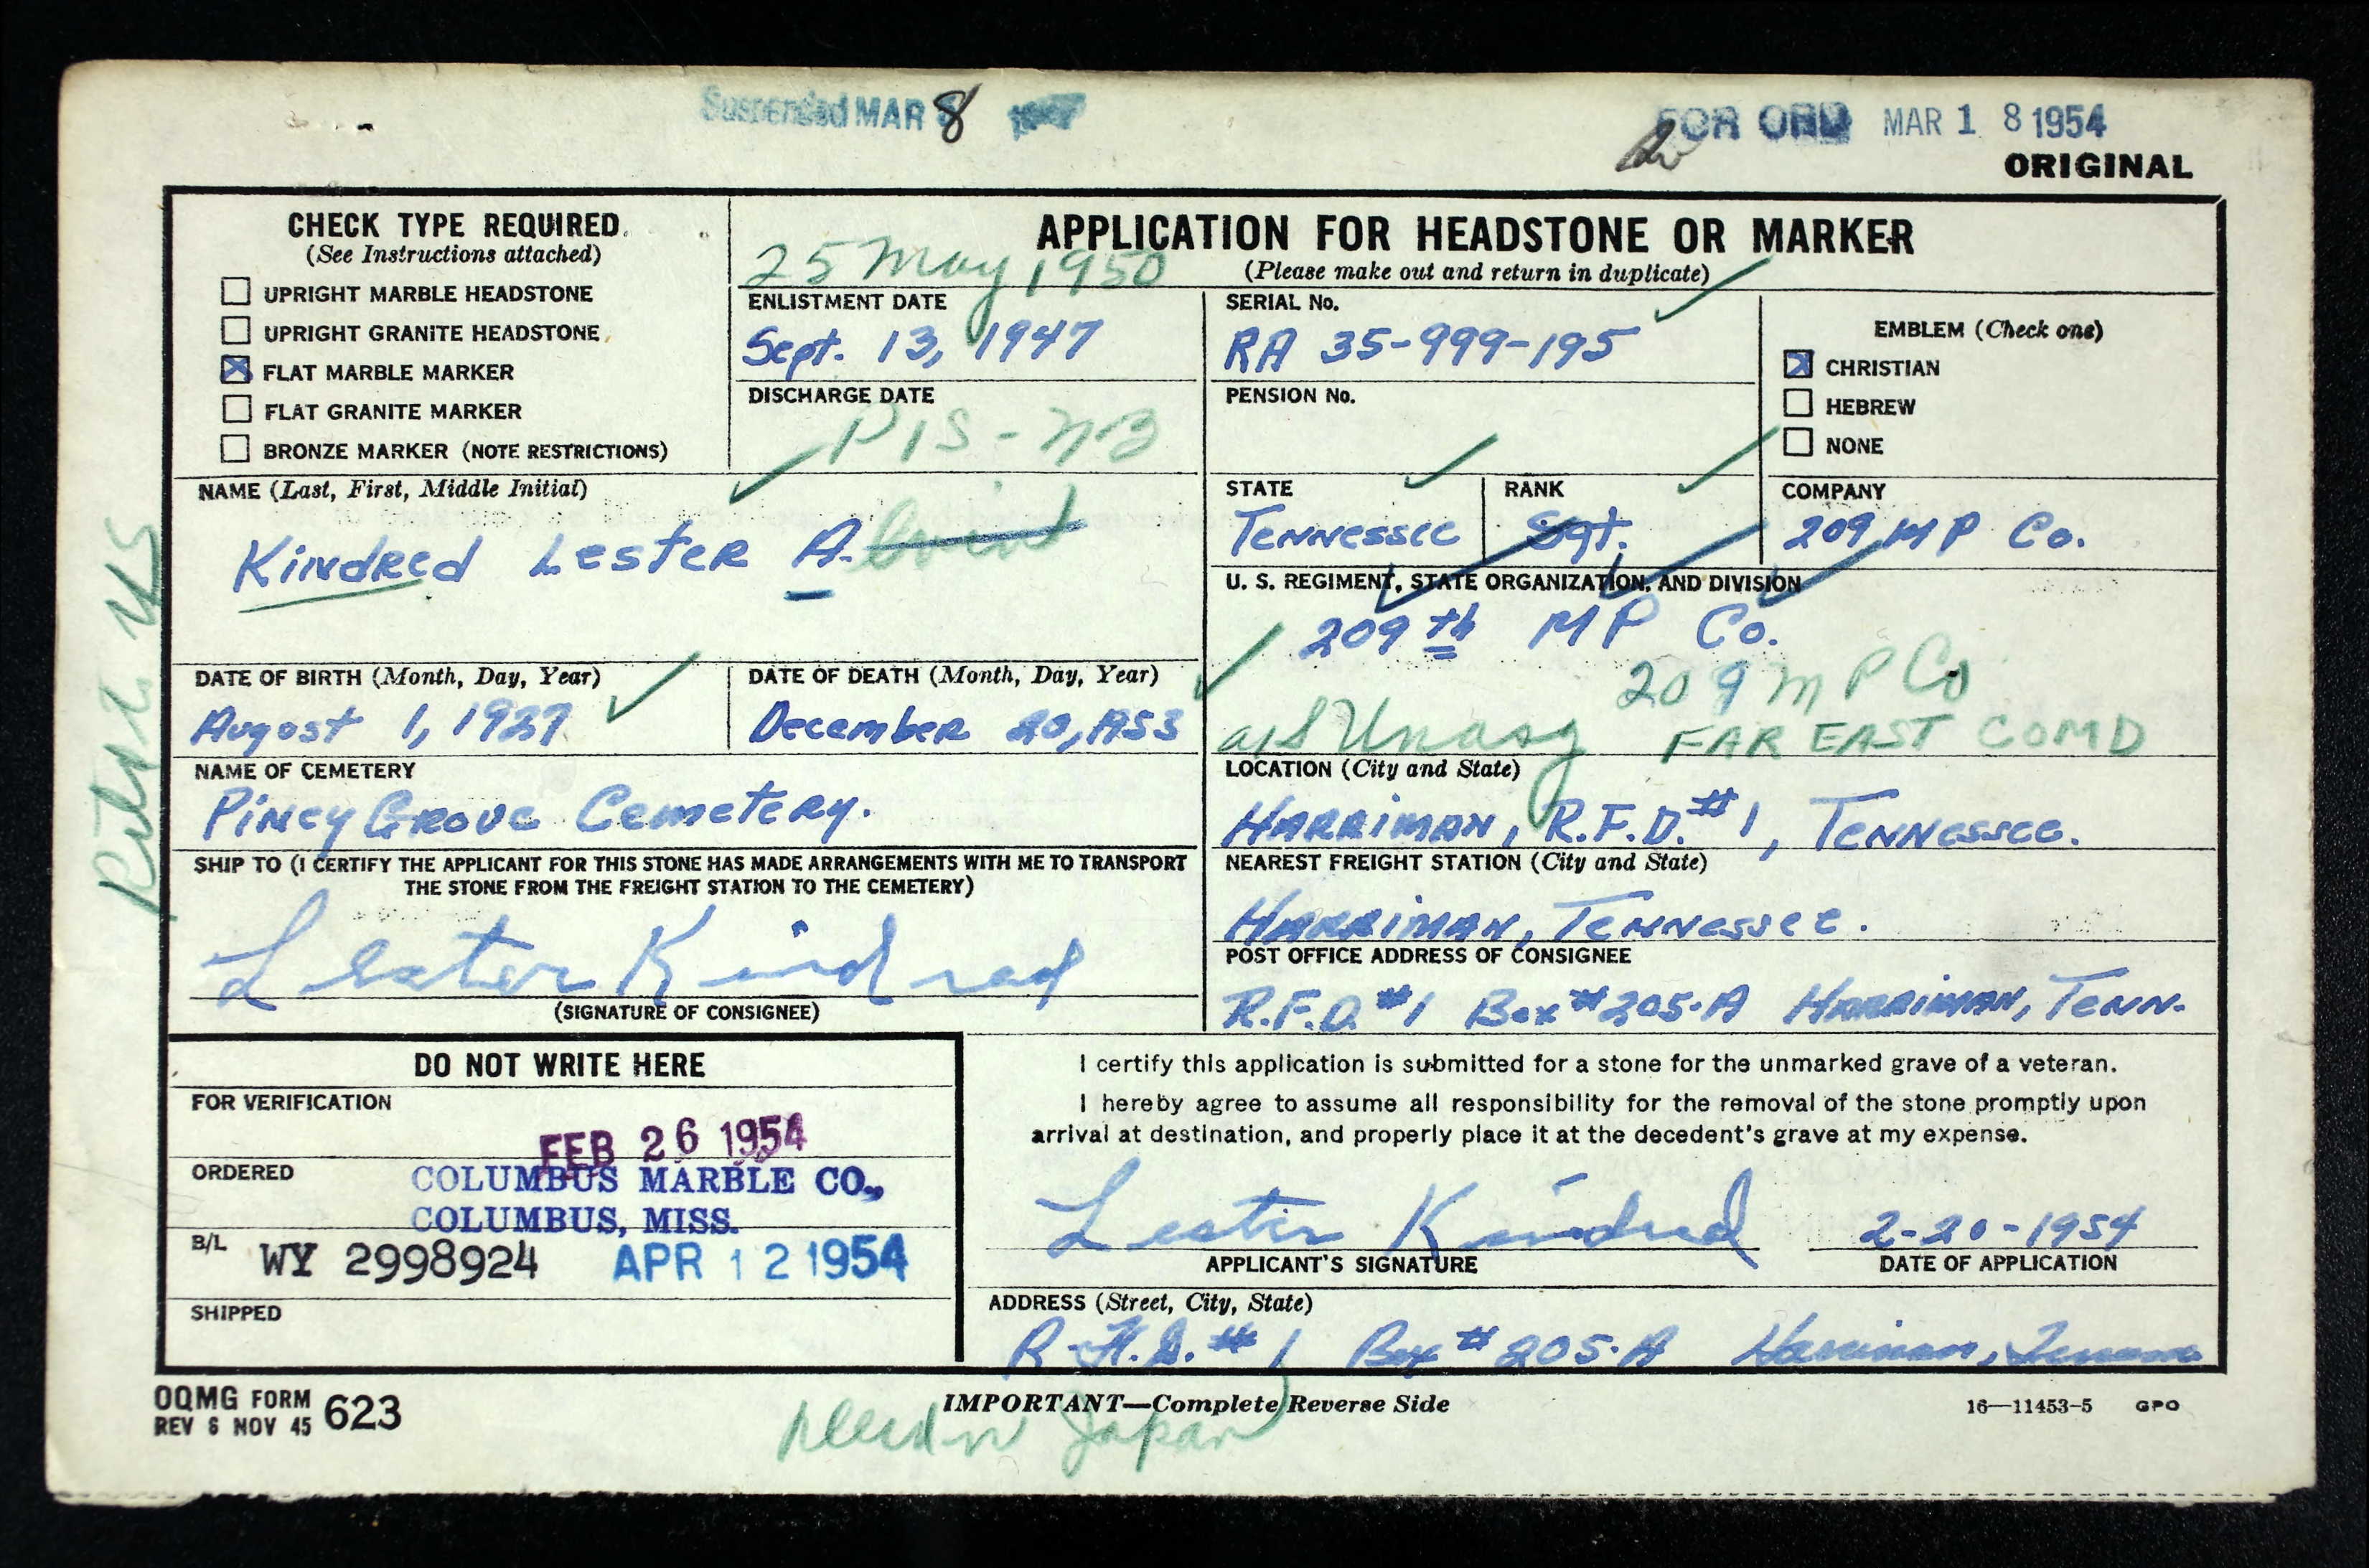 Suspended MAR 8
FOR ORD MAR 18 1954
ORIGINAL
CHECK TYPE REQUIRED
(See Instructions attached)
UPRIGHT MARBLE HEADSTONE
UPRIGHT GRANITE HEADSTONE
FLAT MARBLE MARKER
FLAT GRANITE MARKER
BRONZE MARKER (NOTE RESTRICTIONS)
APPLICATION FOR HEADSTONE OR MARKER
(Please make out and return in duplicate)
25 May 1950
ENLISTMENT DATE
Sept. 13, 1947
DISCHARGE DATE
SERIAL No.
RA 35-999-195
PENSION No.
EMBLEM (Check one)
CHRISTIAN
HEBREW
NONE
NAME (Last, First, Middle Initial)
Kindred Lester A.
STATE
Tennessee
RANK
Sgt.
COMPANY
209 MP Co.
U. S. REGIMENT, STATE ORGANIZATION, AND DIVISION
209th MP Co.
209 MP Co
Unasg FAR EAST COMD
DATE OF BIRTH (Month, Day, Year)
August 1, 1927
DATE OF DEATH (Month, Day, Year)
December 20, 1953
NAME OF CEMETERY
Piney Grove Cemetery.
LOCATION (City and State)
Harriman, R.F.D. #1, Tennessee.
SHIP TO (I CERTIFY THE APPLICANT FOR THIS STONE HAS MADE ARRANGEMENTS WITH ME TO TRANSPORT
THE STONE FROM THE FREIGHT STATION TO THE CEMETERY)
Lester Kindred
(SIGNATURE OF CONSIGNEE)
NEAREST FREIGHT STATION (City and State)
Harriman, Tennessee.
POST OFFICE ADDRESS OF CONSIGNEE
R.F.D. #1 Box #205-A Harriman, Tenn.
DO NOT WRITE HERE
FOR VERIFICATION
FEB 26 1954
ORDERED
COLUMBUS MARBLE CO.,
COLUMBUS, MISS.
B/L WY 2998924 APR 12 1954
SHIPPED
I certify this application is submitted for a stone for the unmarked grave of a veteran.
I hereby agree to assume all responsibility for the removal of the stone promptly upon
arrival at destination, and properly place it at the decedent's grave at my expense.
Lester Kindred 2-20-1954
APPLICANT'S SIGNATURE DATE OF APPLICATION
ADDRESS (Street, City, State)
R.F.D. #1 Box #205-A Harriman, Tenn
OQMG FORM 623
REV 6 NOV 45
IMPORTANT—Complete Reverse Side
16—11453-5 GPO
Japan